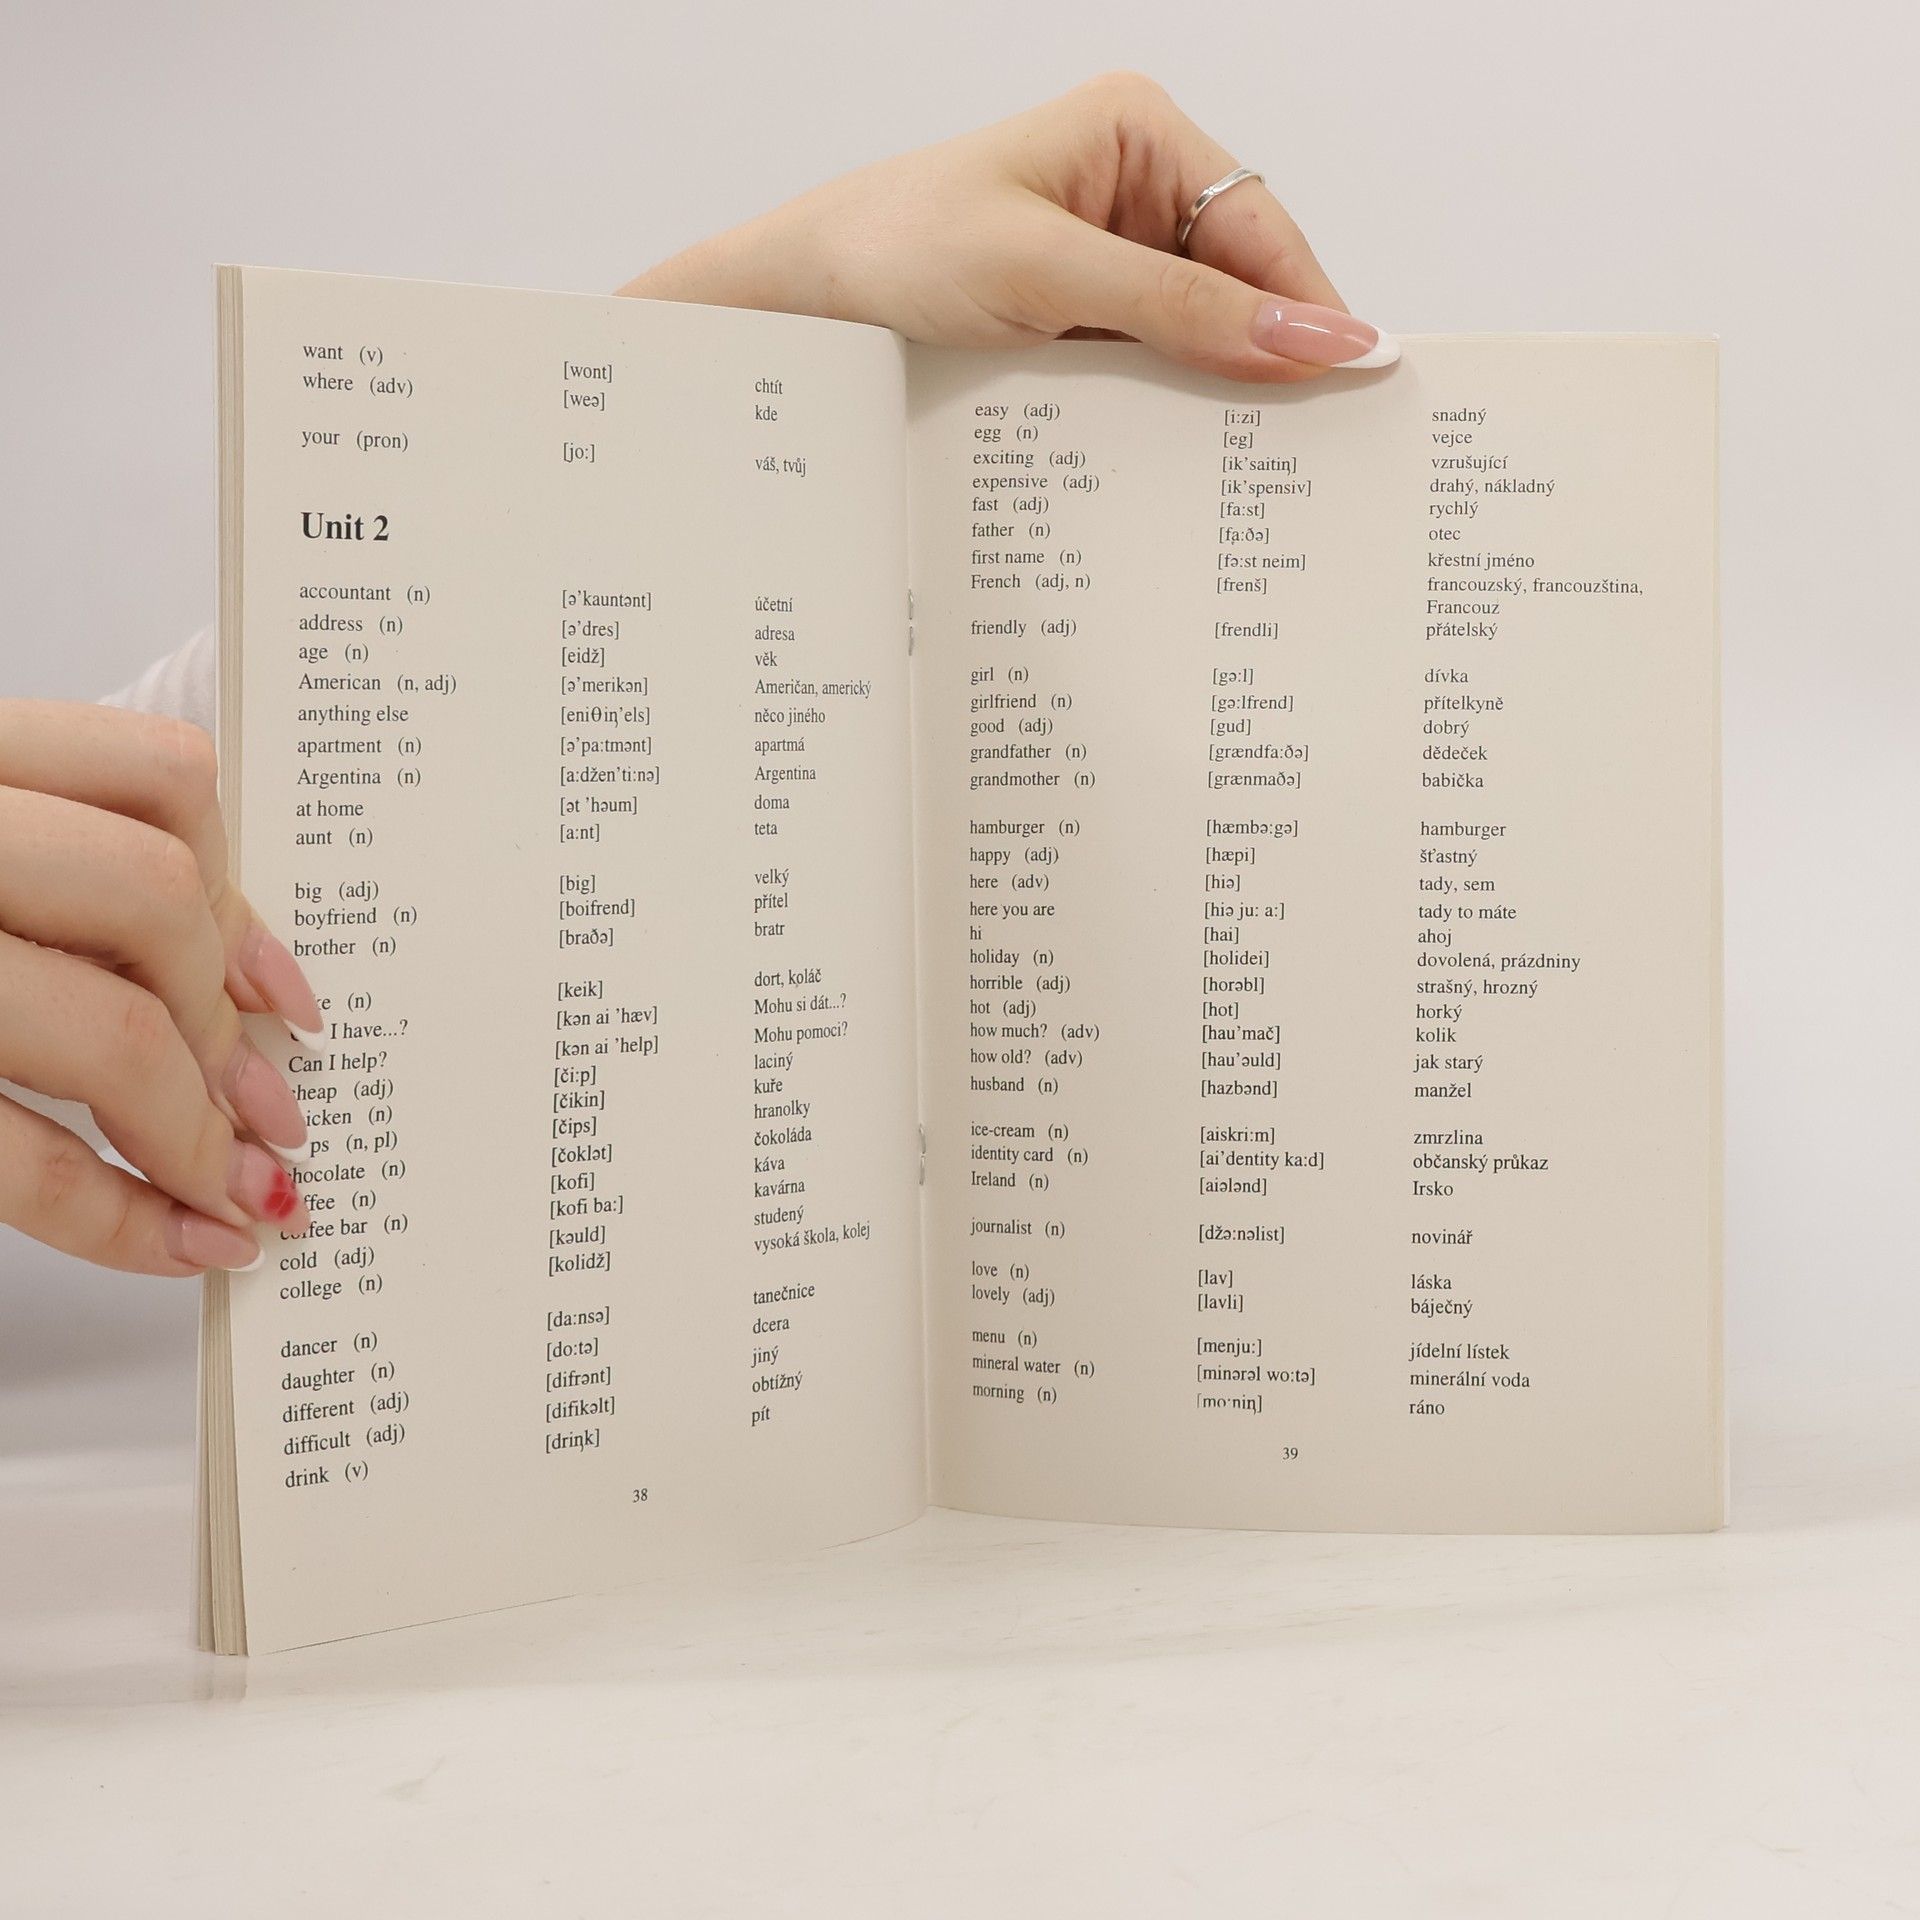 want (v) [wont] chtít
where (adv) [weə] kde
your (pron) [jo:] váš, tvůj
Unit 2
accountant (n) [ə’kauntənt] účetní
address (n) [ə’dres] adresa
age (n) [eidž] věk
American (n, adj) [ə’merikən] Američan, americký
anything else [eniθiŋ’els] něco jiného
apartment (n) [ə’pa:tmənt] apartmá
Argentina (n) [a:džen’ti:nə] Argentina
at home [ət ’həum] doma
aunt (n) [a:nt] teta
big (adj) [big] velký
boyfriend (n) [boifrend] přítel
brother (n) [braðə] bratr
ke (n) [keik] dort, koláč
I have...? [kən ai ’hæv] Mohu si dát...?
Can I help? [kən ai ’help] Mohu pomoci?
heap (adj) [či:p] laciný
icken (n) [čikin] kuře
ps (n, pl) [čips] hranolky
hocolate (n) [čoklət] čokoláda
ffee (n) [kofi] káva
coffee bar (n) [kofi ba:] kavárna
cold (adj) [kəuld] studený
college (n) [kolidž] vysoká škola, kolej
dancer (n) [da:nsə] tanečnice
daughter (n) [do:tə] dcera
different (adj) [difrənt] jiný
difficult (adj) [difikəlt] obtížný
drink (v) [driŋk] pít
38
easy (adj) [i:zi] snadný
egg (n) [eg] vejce
exciting (adj) [ik’saitiŋ] vzrušující
expensive (adj) [ik’spensiv] drahý, nákladný
fast (adj) [fa:st] rychlý
father (n) [fa:ðə] otec
first name (n) [fə:st neim] křestní jméno
French (adj, n) [frenš] francouzský, francouzština,
Francouz
friendly (adj) [frendli] přátelský
girl (n) [gə:l] dívka
girlfriend (n) [gə:lfrend] přítelkyně
good (adj) [gud] dobrý
grandfather (n) [grændfa:ðə] dědeček
grandmother (n) [grænmaðə] babička
hamburger (n) [hæmbə:gə] hamburger
happy (adj) [hæpi] šťastný
here (adv) [hiə] tady, sem
here you are [hiə ju: a:] tady to máte
hi [hai] ahoj
holiday (n) [holidei] dovolená, prázdniny
horrible (adj) [horəbl] strašný, hrozný
hot (adj) [hot] horký
how much? (adv) [hau’mač] kolik
how old? (adv) [hau’əuld] jak starý
husband (n) [hazbənd] manžel
ice-cream (n) [aiskri:m] zmrzlina
identity card (n) [ai’dentity ka:d] občanský průkaz
Ireland (n) [aiələnd] Irsko
journalist (n) [džə:nəlist] novinář
love (n) [lav] láska
lovely (adj) [lavli] báječný
menu (n) [menju:] jídelní lístek
mineral water (n) [minərəl wo:tə] minerální voda
morning (n) [mo:niŋ] ráno
39